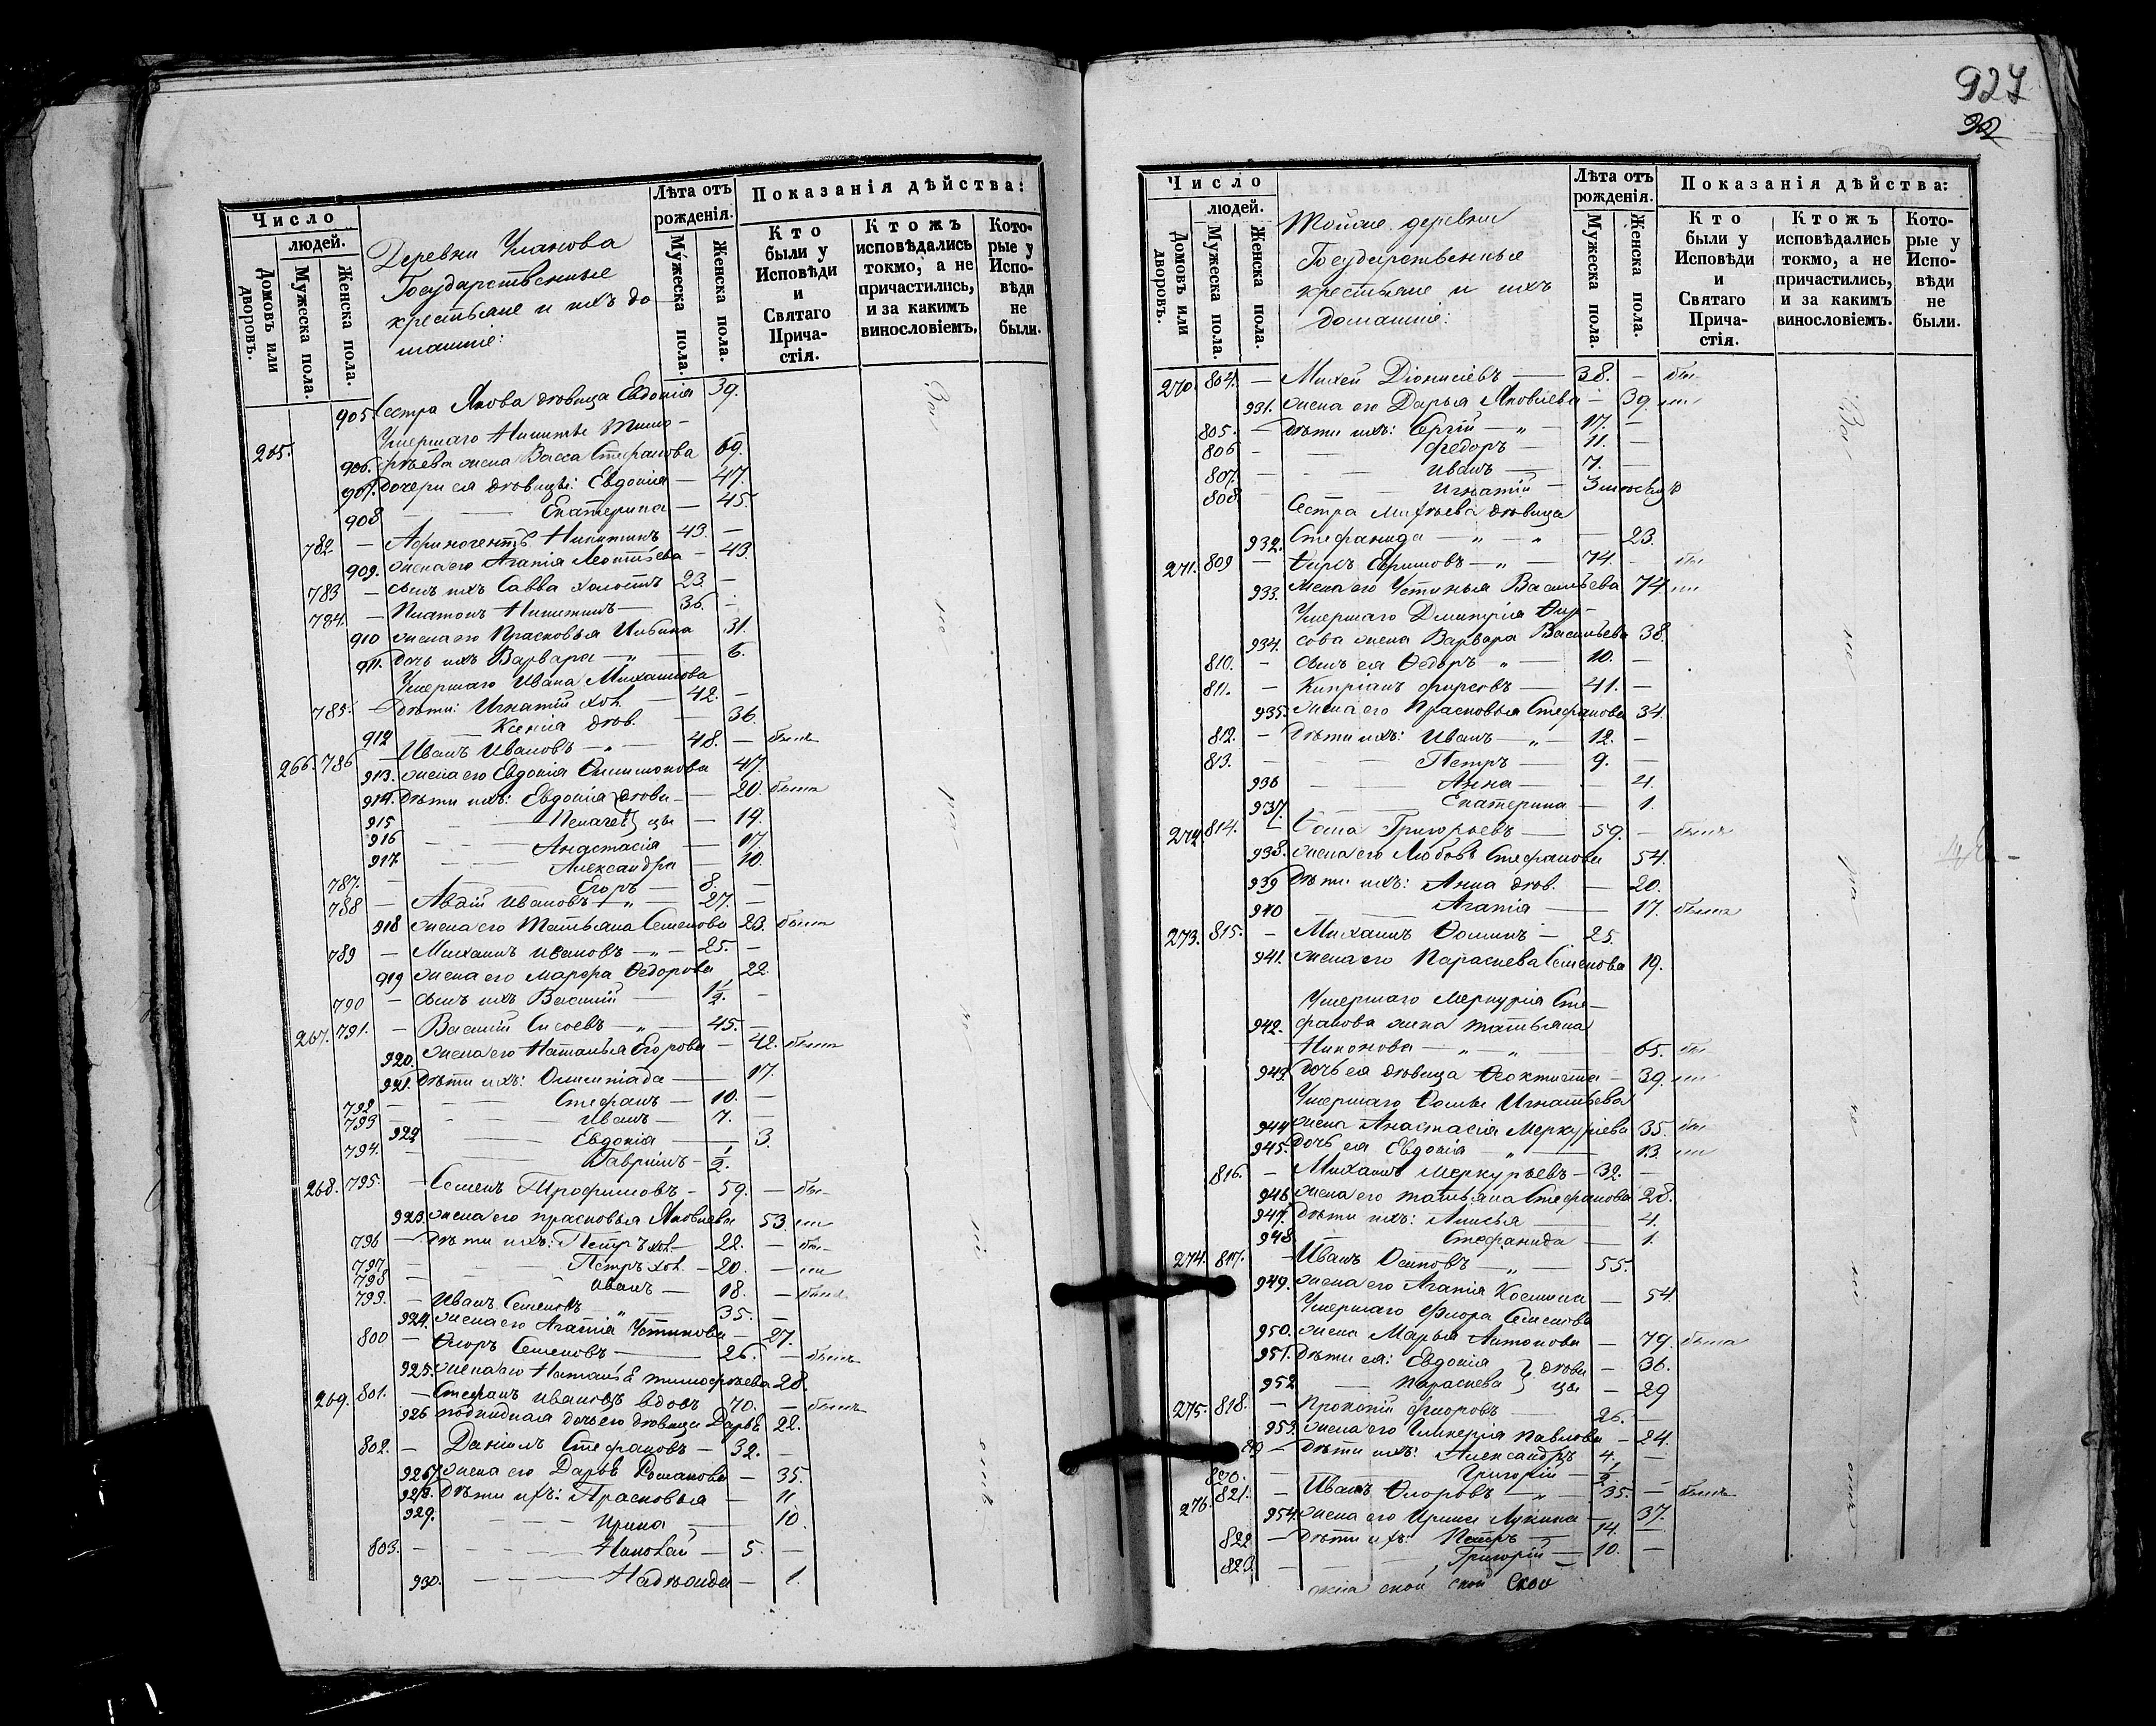 927
Число
людей.
Домовъ или дворовъ.
Мужеска пола.
Женска пола.
Деревни Уланова
Государственные
крестьяне и ихъ до
машнiе:
Лѣта отъ
рожденiя.
Мужеска пола.
Женска пола.
Показанiя дѣйства:
Кто были у Исповѣди и Святаго Причастiя.
Ктожъ исповѣдались токмо, а не причастились, и за какимъ винословiемъ.
Которые у Исповѣди не были.
905 Сестра Якова дѣвица Евдокiя 39.
265. Умершаго Никиты Тимо-
906. фѣева жена Васса Стефанова 69.
907. Дочери ея дѣвицы: Евдокiя — 47.
908 — Екатерина — 45.
782 — Афиногентъ Никитинъ 43. —
909. жена его Агапiя Леонтьева — 43.
783 — сынъ ихъ Савва холостъ 23. —
784. — Платонъ Никитинъ — 36. —
910 жена его Прасковья Ильина 31.
911. Дочь ихъ Варвара — „ — 6.
Умершаго Ивана Михайлова
785. — Дѣти: Игнатiй хол. — 42. —
912 — Ксенiя дѣв. — 36.
266. 786 — Иванъ Ивановъ — „ — 48. — былъ
913. жена его Евдокiя Филимонова 47.
914. Дѣти ихъ: Евдокiя } дѣви- — 20. была
915 — Пелагея } цы — 19.
916 — — Анастасiя — 17.
917 — — Александра — 10.
787. — — Егоръ — 8. —
788 — Авдiй Ивановъ — „ — 27. —
918 жена его Татьяна Семенова 23. была
789 — Михаилъ Ивановъ — „ — 25. —
919 жена его Марфа Федорова 22.
790 — сынъ ихъ Василiй — 1 1/2. —
267. 791. — Василiй Сисоевъ — „ — 45. —
920. жена его Наталья Егорова — 42. была
921. Дѣти ихъ: Олимпiада — 17.
792 — — Стефанъ — 10. —
793 — — Иванъ — 7. —
922 — Евдокiя — 3.
794. — — Гаврiилъ — 1/2.
268. 795. — Семенъ Трофимовъ — 59. — бы-
923. жена его Прасковья Яковлева 53. ли
796 — Дѣти ихъ: Петръ хол. — 22. — бы-
797 — — Петръ хол. — 20. — ли
798 — — Иванъ — 18. —
799. — Иванъ Семеновъ — „ — 35. —
924. жена его Агапiя Устинова — 27.
800 — Егоръ Семеновъ — 26. — былъ
925. жена его Наталья Тимофѣева 28.
269. 801. — Стефанъ Ивановъ вдовъ 70. — былъ
926 подкидная дочь его дѣвица Дарья 22.
802. — Данiилъ Стефановъ — 32. —
926/7. жена его Дарья Романова — 35.
928. Дѣти ихъ: Прасковья — 11.
929. — — Ирина — 10.
803. — — — Николай — 5. —
930. — — — Надежда — 1.
Всѣ
Число
людей.
Домовъ или дворовъ.
Мужеска пола.
Женска пола.
Тойже деревни
Государственные
крестьяне и ихъ
домашнiе:
Лѣта отъ
рожденiя.
Мужеска пола.
Женска пола.
Показанiя дѣйства:
Кто были у Исповѣди и Святаго Причастiя.
Ктожъ исповѣдались токмо, а не причастились, и за какимъ винословiемъ.
Которые у Исповѣди не были.
270. 804. — Михей Дiонисiевъ — 38. — бы-
931. жена его Дарья Яковлева — 39. ли
805. — Дѣти ихъ: Сергiй — „ — 17. —
806 — — Федоръ — 11. —
807. — — Иванъ — 7. —
808. — — Игнатiй —
Сестра Михѣева дѣвица
932. Стефанида — „ — „ — 23.
271. 809 — Фирсъ Ефимовъ — „ — 74. — бы
933. жена его Устинья Васильева 74 ли
Умершаго Димитрiя Фир-
934. сова жена Варвара Васильева 38.
810. — сынъ ея Федоръ „ — 10. —
811. — Кипрiанъ Фирсовъ — 41. —
935. жена его Прасковья Стефанова 34.
812. — Дѣти ихъ: Иванъ — „ — 12. —
813. — — Петръ — 9. —
936 — — Анна — 4.
937. — Екатерина — 1.
272 814. — Фома Григорьевъ — 59. — былъ
938. жена его Любовь Стефанова 54.
939 Дѣти ихъ: Анна дѣв. — 20.
940 — Агапiя — 17. была
273. 815. — Михаилъ Фоминъ — 25.
941. жена его Параскева Семенова 19.
Умершаго Меркурiя Сте-
942. фанова жена Татьяна
Никонова — „ — „ — 65. бы
943. дочь ея дѣвица Феоктиста — 39. ли
Умершаго Фомы Игнатьева
944 жена Анастасiя Меркурiева 35. бы
945. дочь ея Евдокiя — „ — 13. ли
816. — Михаилъ Меркурьевъ — 32. —
946 жена его Татьяна Стефанова 28.
947. Дѣти ихъ: Анисья — 4.
948 — Стефанида — 1.
274. 817. — Иванъ Осиповъ — „ — 55.
949. жена его Агапiя Косьмина — 54.
Умершаго Флора Семенова
950. жена Марья Антонова — 79. была
951. Дѣти ея: Евдокiя } дѣви — 36.
952 — Параскева } цы — 29
275. 818. — Прокопiй Флоровъ — 26. —
953. жена его Гликерiя Павлова — 24.
819 — Дѣти ихъ: Александръ 4. —
820. — Григорiй — 1/2. —
276. 821. — Иванъ Флоровъ — „ — 35. — былъ
954. жена его Ирина Лукина — 37.
822 — Дѣти ихъ: Петръ — 14. —
823. — — Григорiй — 10. —
Всѣ